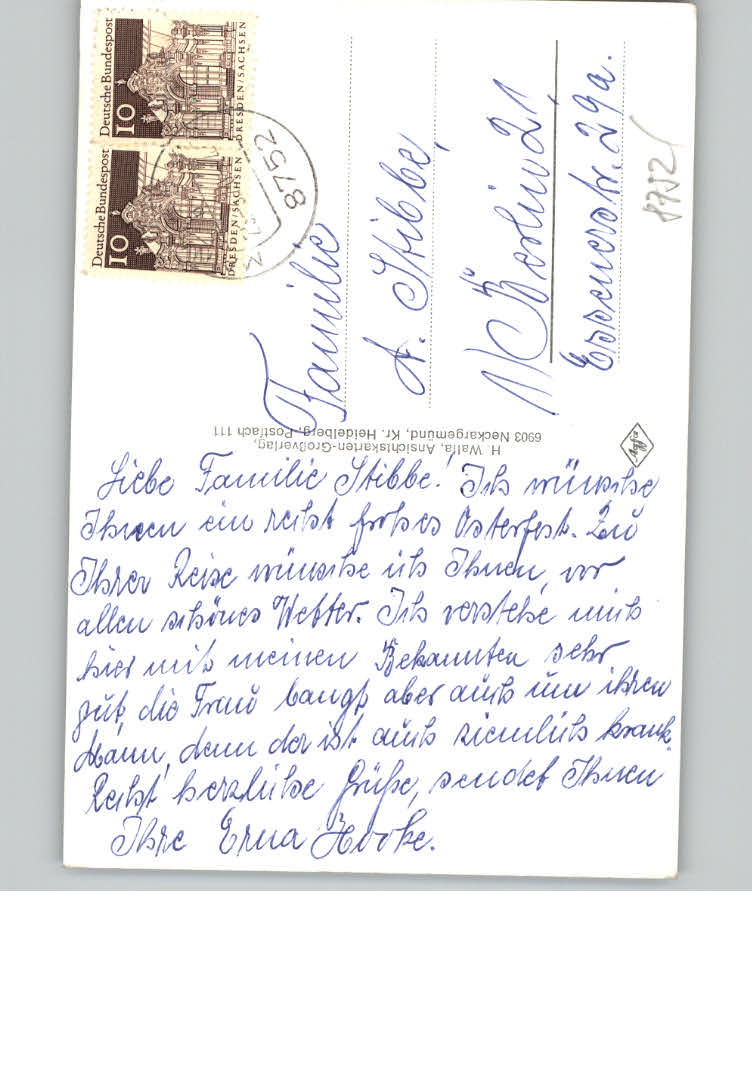 Deutsche Bundespost
10
DRESDEN/SACHSEN
Deutsche Bundespost
10
DRESDEN/SACHSEN
8752
Familie
A. Stibbe,
1) Berlin 21,
Essenerstr. 29a.
8752
H. Walla, Ansichtskarten-Großverlag,
6903 Neckargemünd, Kr. Heidelberg, Postfach 111
Agfa
Liebe Familie Stibbe! Ich wünsche
Ihnen ein recht frohes Osterfest. Zu
Ihrer Reise wünsche ich Ihnen, vor
allen schönes Wetter. Ich verstehe mich
hier mit meinen Bekannten sehr
gut, die Frau bangt aber auch um ihren
Mann, denn der ist auch ziemlich krank.
Recht herzliche Grüße, sendet Ihnen
Ihre Erna